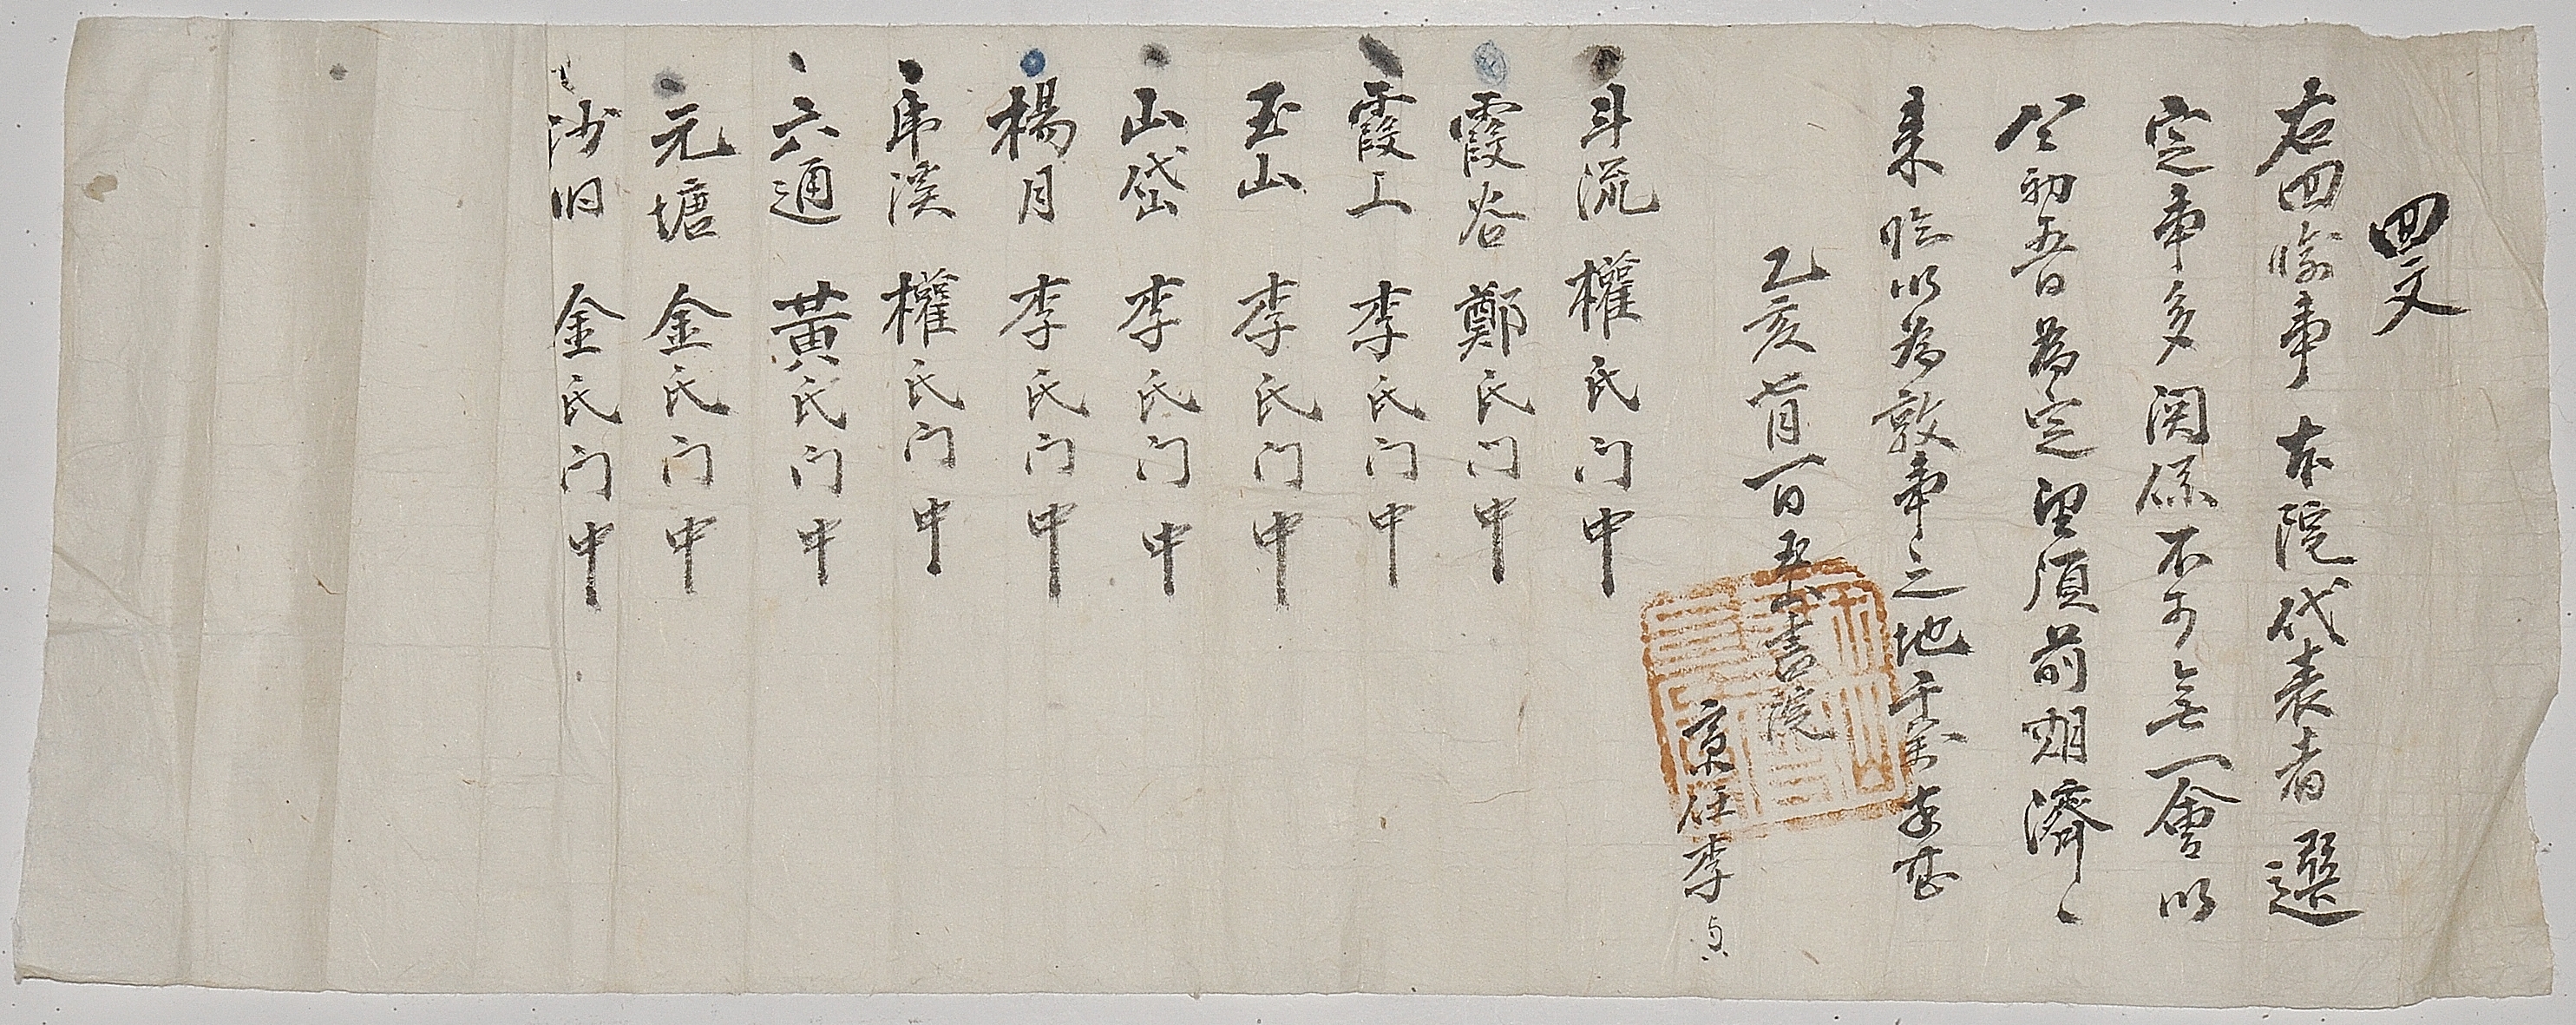 回文
右回喩事 本院代表者選
定事多関係不可無一會以
今初五日為定望須前期濟〻
来臨以為敦事之地千萬幸甚
乙亥七月一日 玉山書院
齋任李
斗流 權氏门中
霞谷 鄭氏门中
霞工 李氏门中
玉山 李氏门中
山岱 李氏门中
楊月 李氏门中
乕溪 權氏门中
六通 黃氏门中
元塘 金氏门中
沙旧 金氏门中